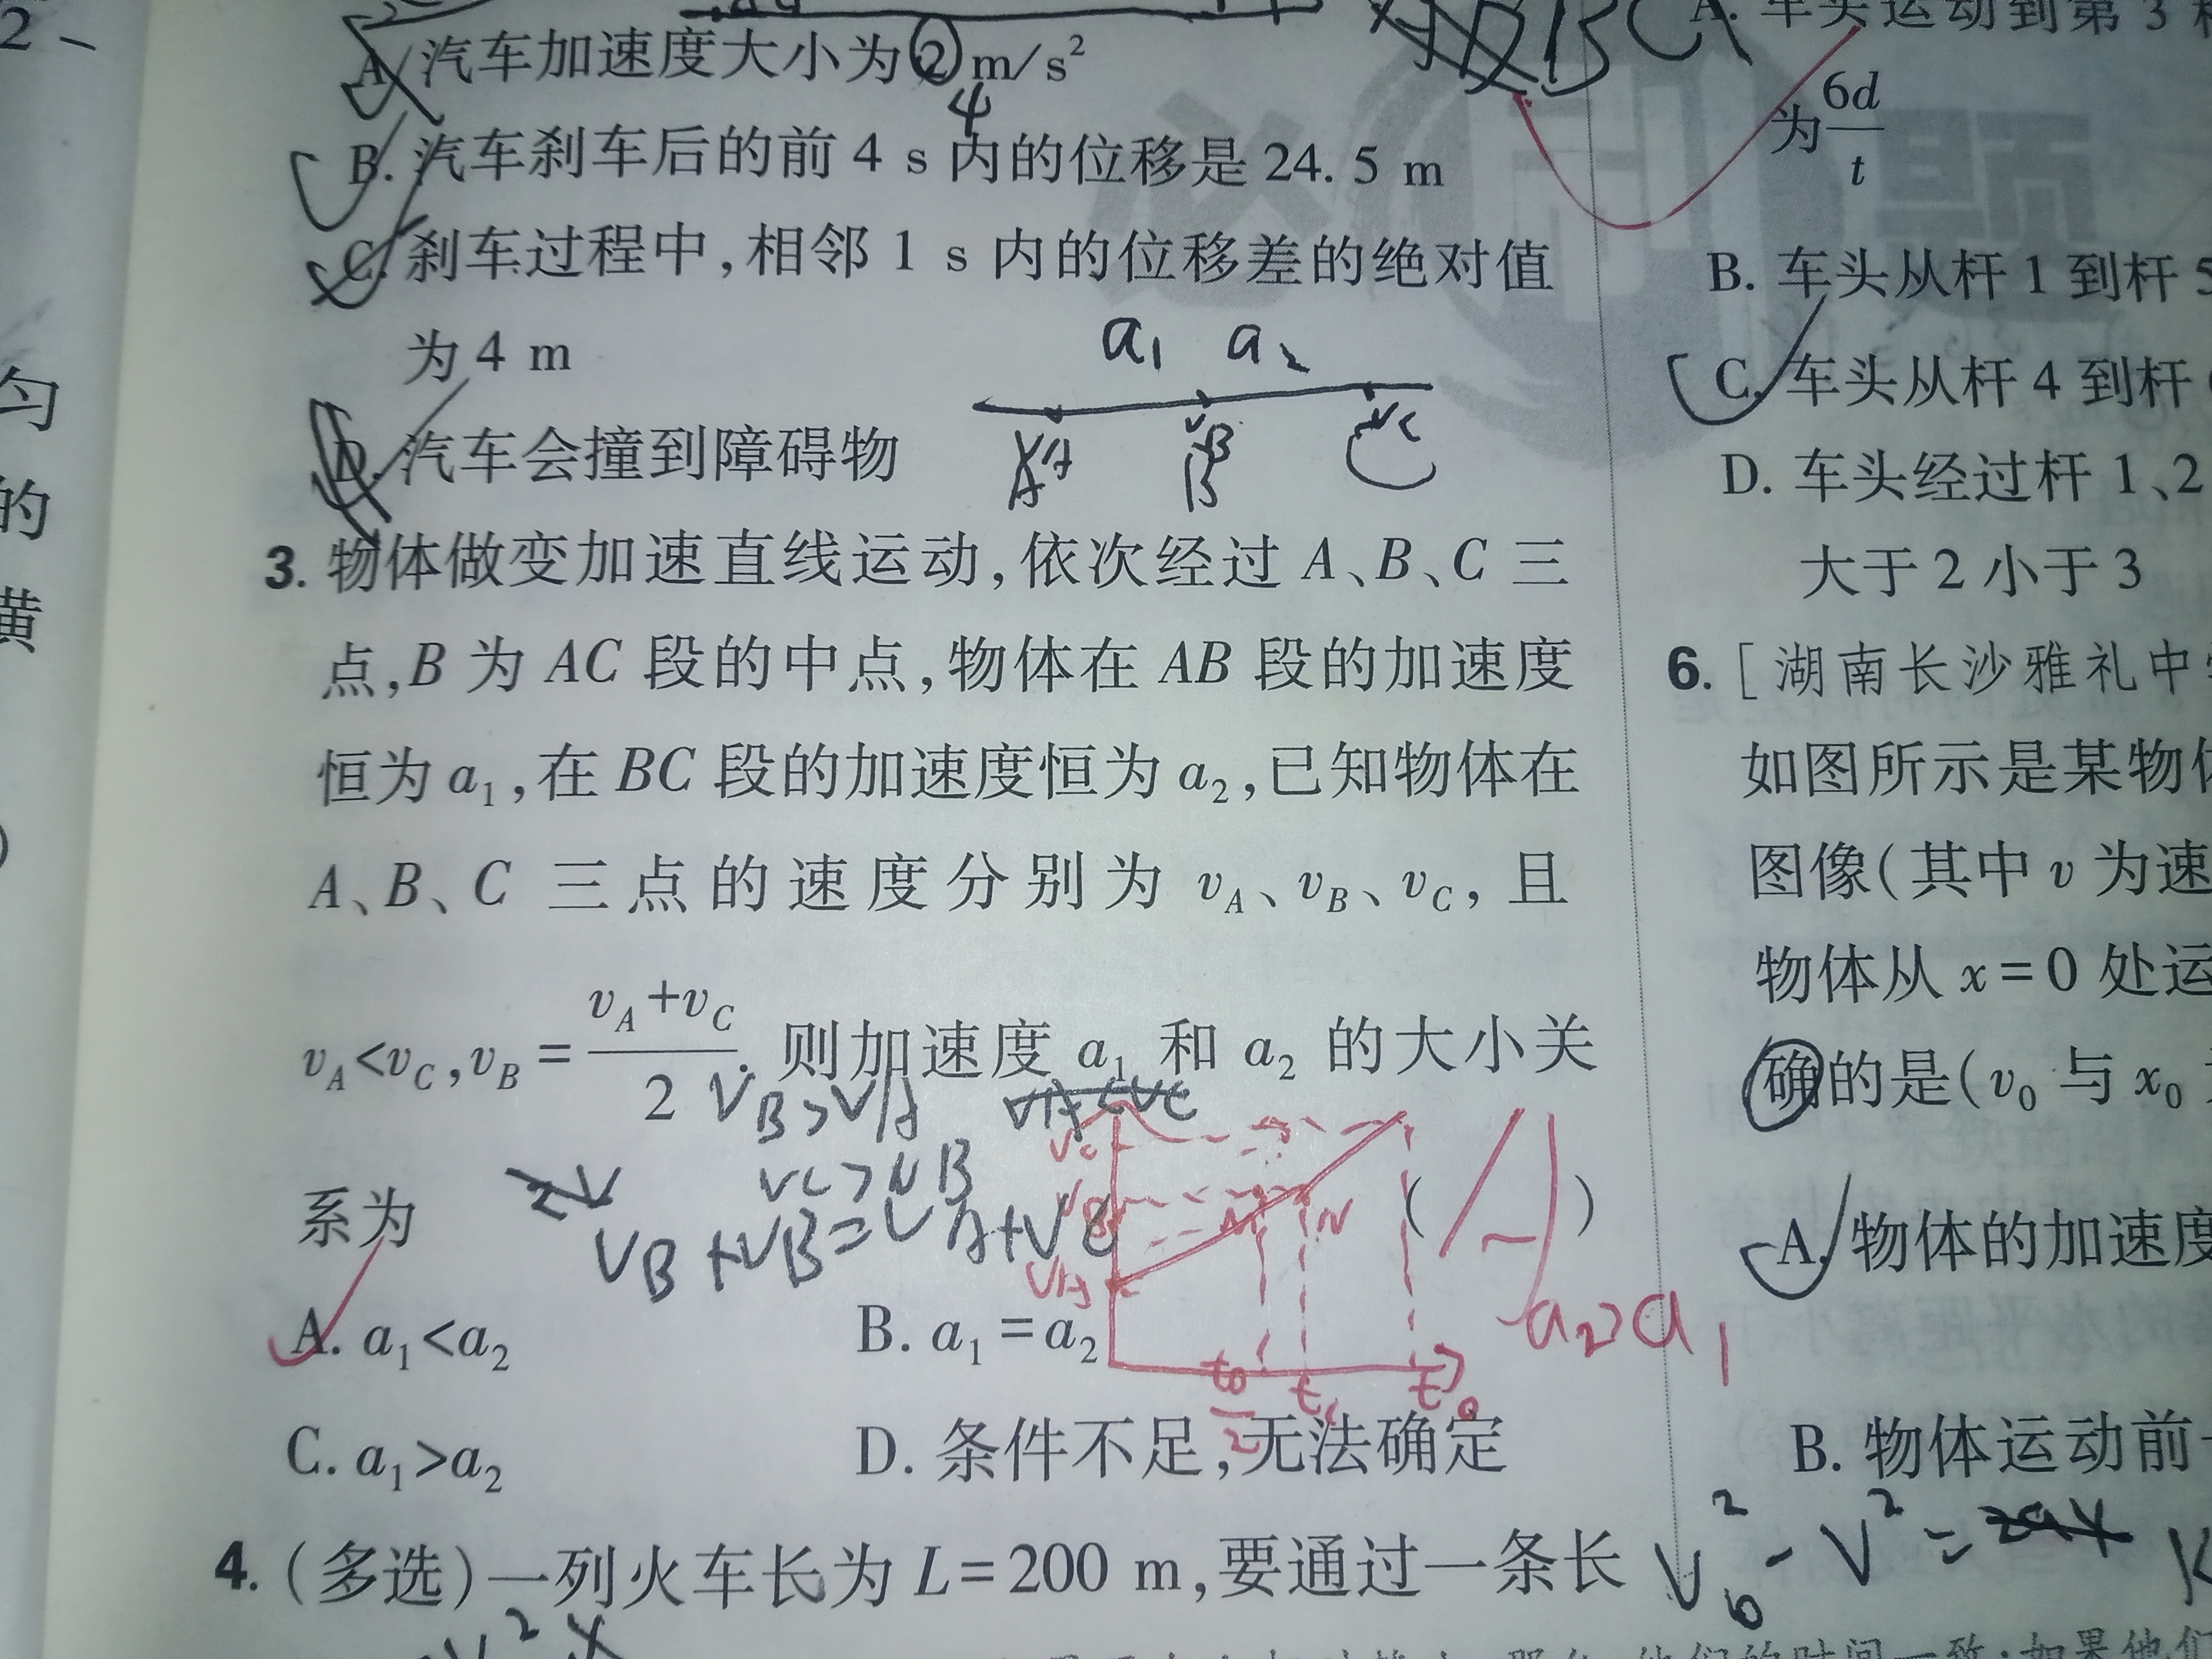 2
A. 汽车加速度大小为2 m/s²
4
B. 汽车刹车后的前 4 s 内的位移是 24. 5 m
C. 刹车过程中,相邻 1 s 内的位移差的绝对值
为 4 m
a₁ a₂
D. 汽车会撞到障碍物
3. 物体做变加速直线运动,依次经过 A、B、C 三
点,B 为 AC 段的中点,物体在 AB 段的加速度
恒为 a₁,在 BC 段的加速度恒为 a₂,已知物体在
A、B、C 三点的速度分别为 v_A、v_B、v_C,且
v_A<v_C,v_B=(v_A+v_C)/2. 则加速度 a₁ 和 a₂ 的大小关
V_B>V_A
系为 ( )
V_C>V_B
V_B+V_B=V_A+V_C
A. a₁<a₂ B. a₁=a₂
a₂>a₁
C. a₁>a₂ D. 条件不足,无法确定
4. (多选)一列火车长为 L=200 m,要通过一条长
匀
的
黄
BC
A. 车头运动到第 3
为 6d/t
B. 车头从杆 1 到杆 5
C. 车头从杆 4 到杆
D. 车头经过杆 1、2
大于 2 小于 3
6. [湖南长沙雅礼中
如图所示是某物体
图像(其中 v 为速
物体从 x=0 处运
确的是(v₀ 与 x₀
A. 物体的加速度
B. 物体运动前
V₀²-V²=